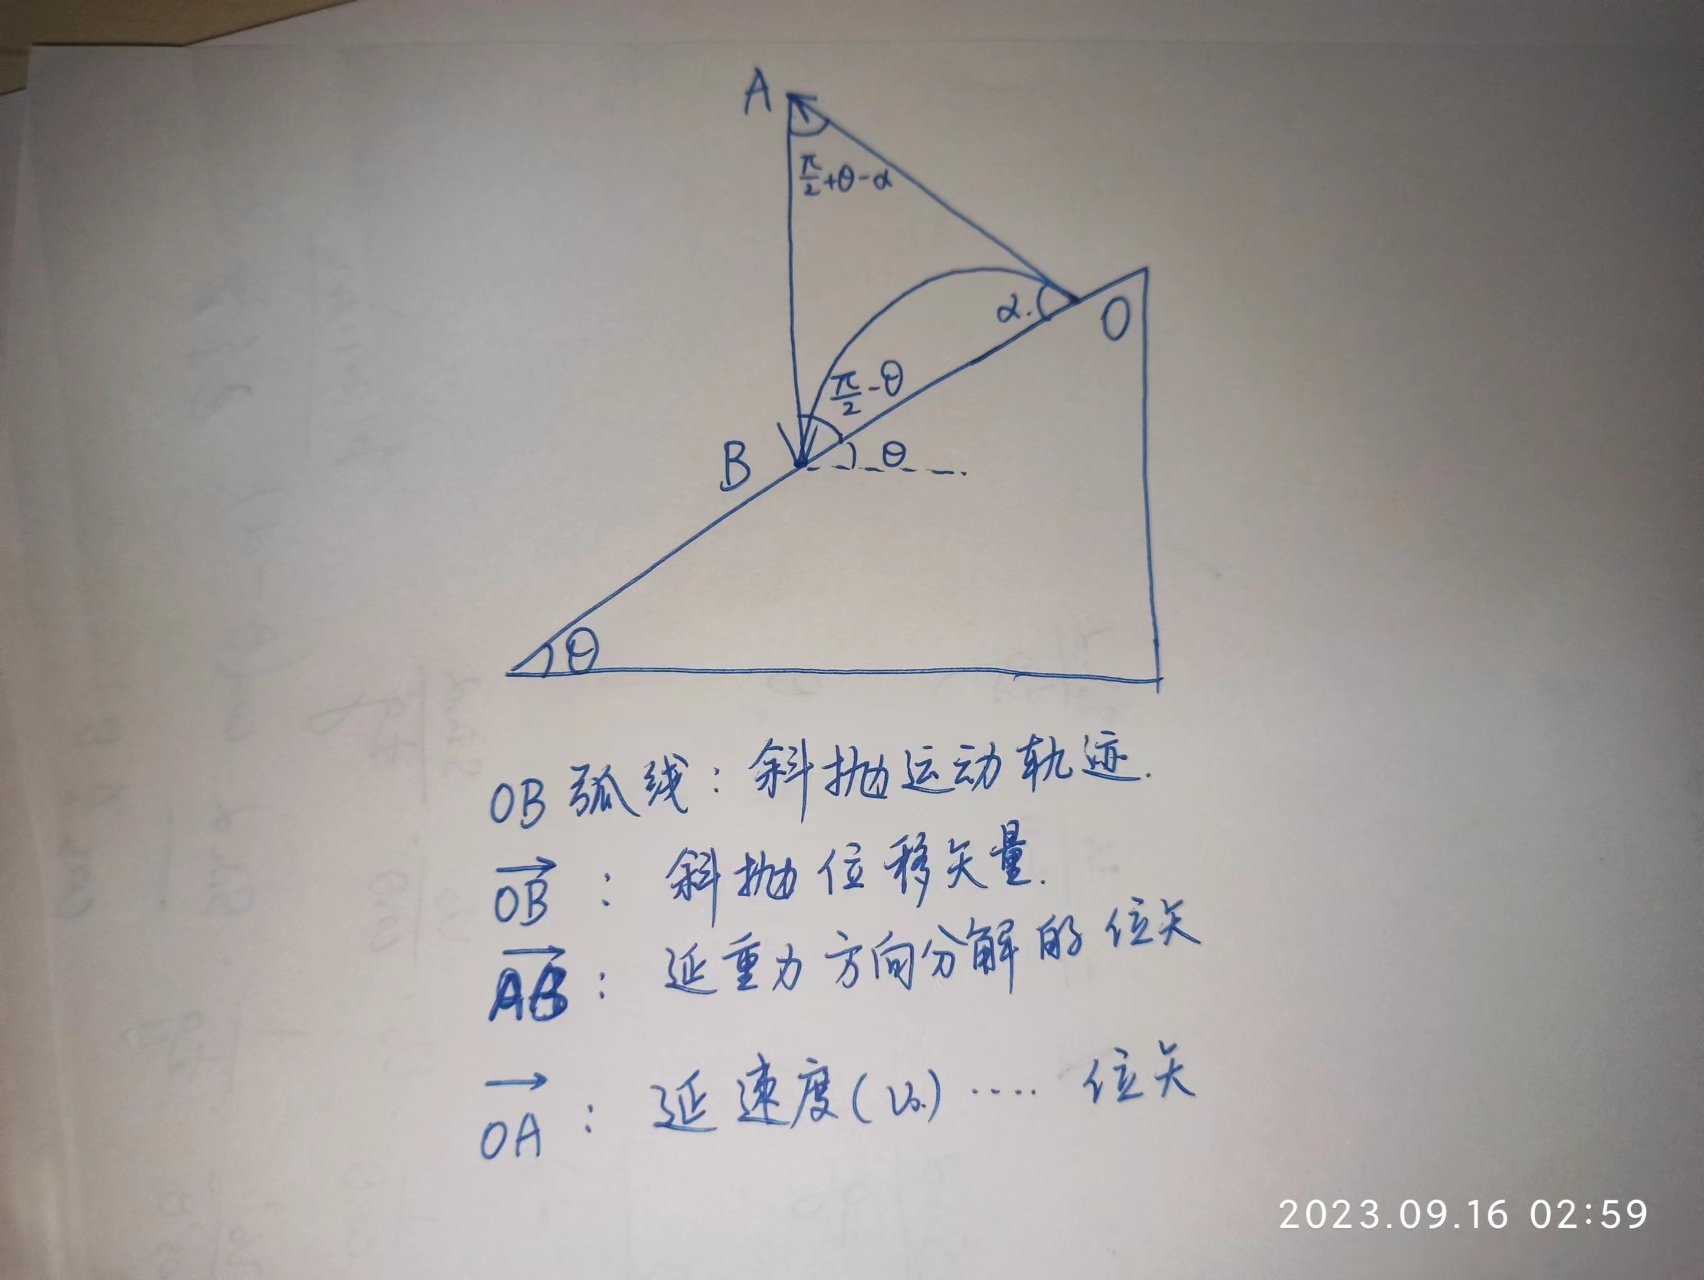 A
π/2+θ-α
α.
O
π/2-θ
B
θ
θ
OB弧线：斜抛运动轨迹.
OB：斜抛位移矢量.
AB：延重力方向分解的位矢
OA：延速度(v₀)‥‥位矢
2023.09.16 02:59